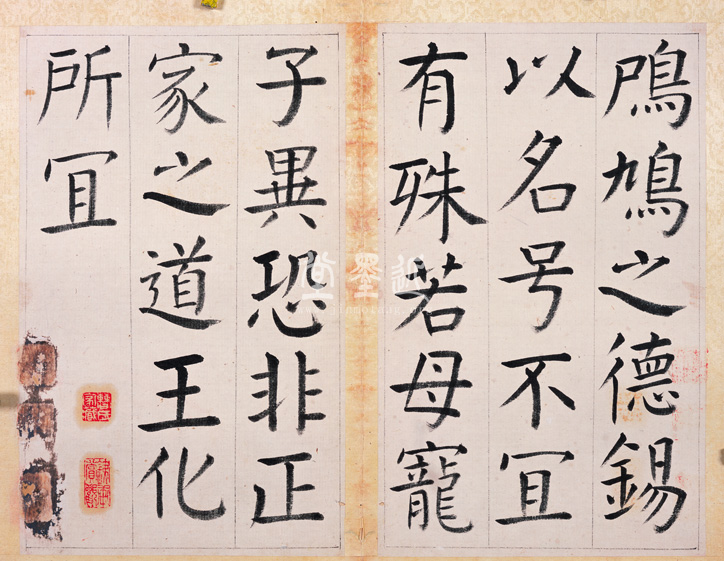 鳲鳩之德錫
以名号不冝
有殊若母寵
子異恐非正
家之道王化
所冝